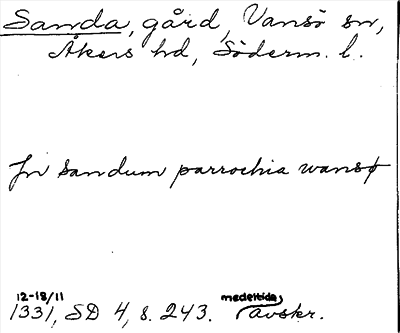 Sanda, gård, Vansö sn,
Åkers hd, Söderm. l.
In sandum parrochia wansø
12-18/11 medeltida
1331, SD 4, s. 243. avskr.